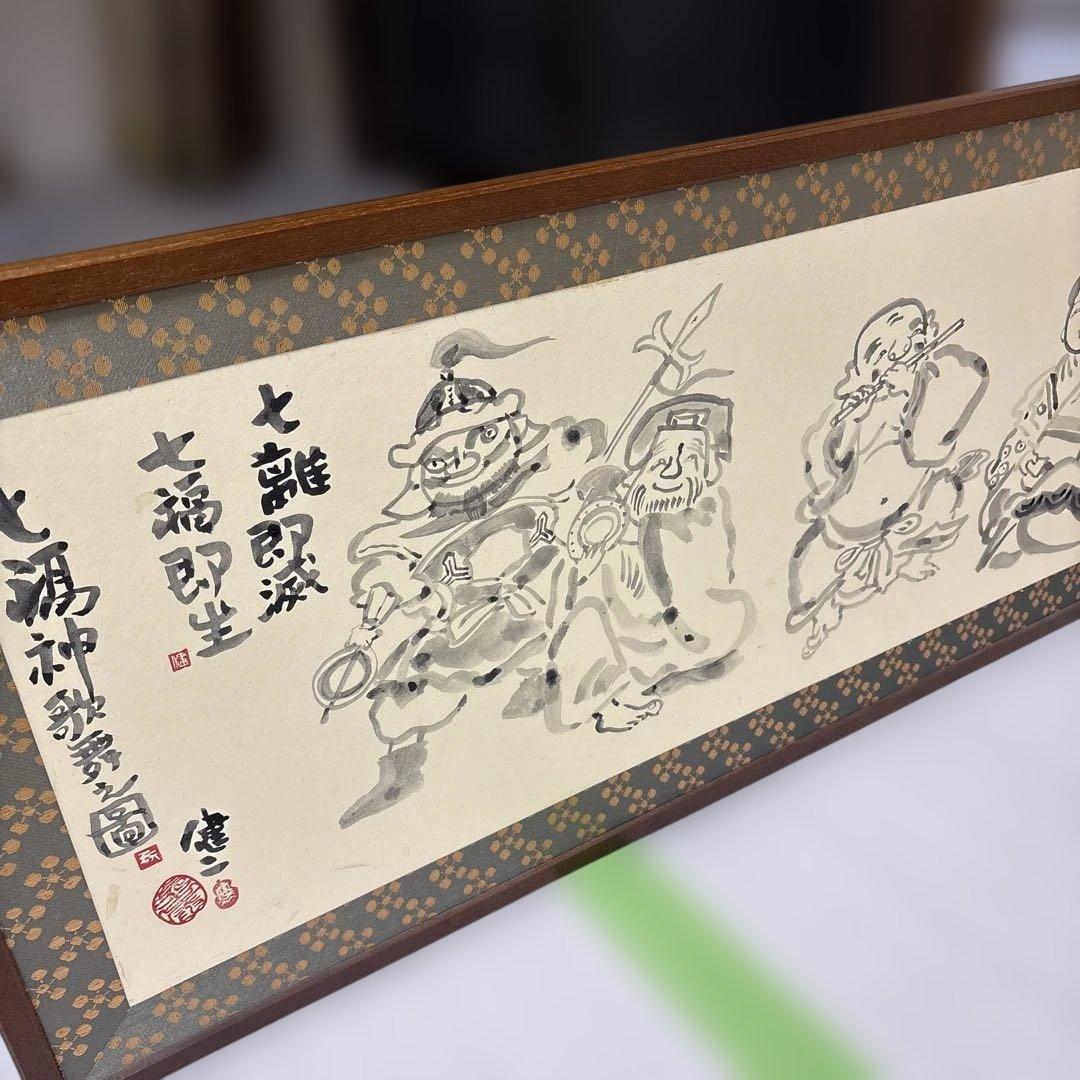 七難即滅
七福即生
七福神歌舞之図
健二